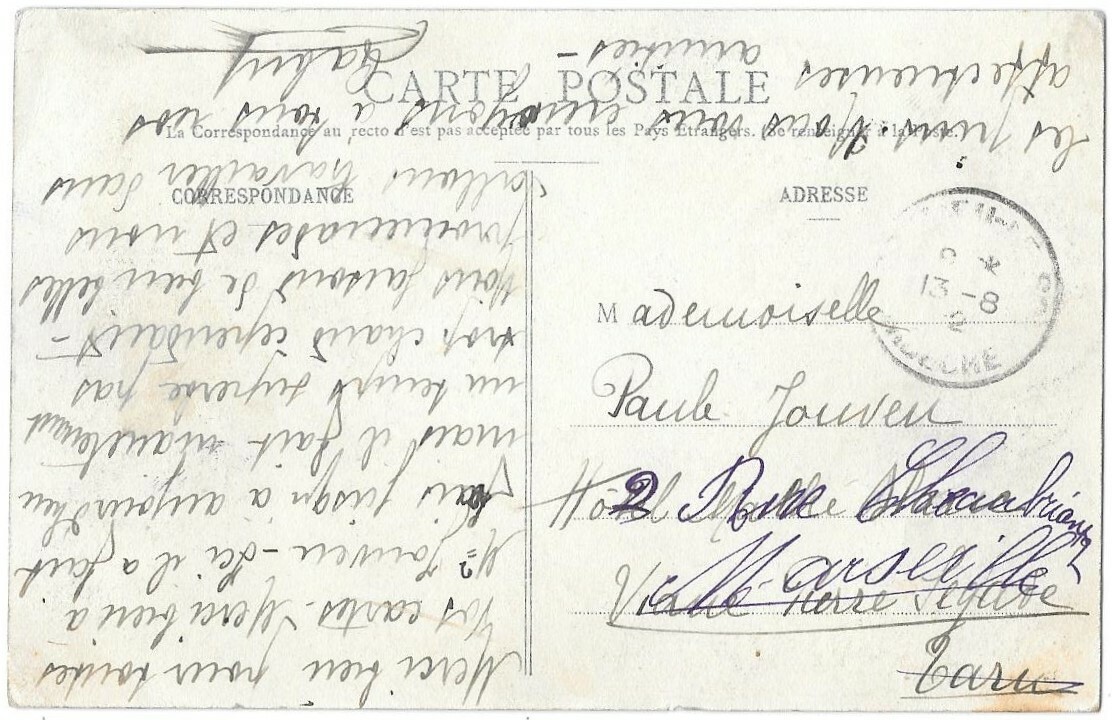 CARTE POSTALE
La Correspondance au recto n'est pas acceptée par tous les Pays Etrangers. (Se renseigner à la Poste.
CORRESPONDANCE
Merci bien pour toutes
Vos cartes. Merci bien à
Mme Jouven - Ici il a fait
frais jusqu'a aujourd'hui
mais il fait maintenant
un temps superbe pas
trop chaud cependant -
Nous faisons de bien belles
promenades et nous
allons travailler dans
les pins. Nous vous envoyons à tous nos
affectueuses
amitiés -
Gaby
ADRESSE
Mademoiselle
Paule Jouven
Hôtel
2 Rue Chateaubriand
Marseille
Viane Pierre Ségade
Tarn
13 - 8
ARDECHE